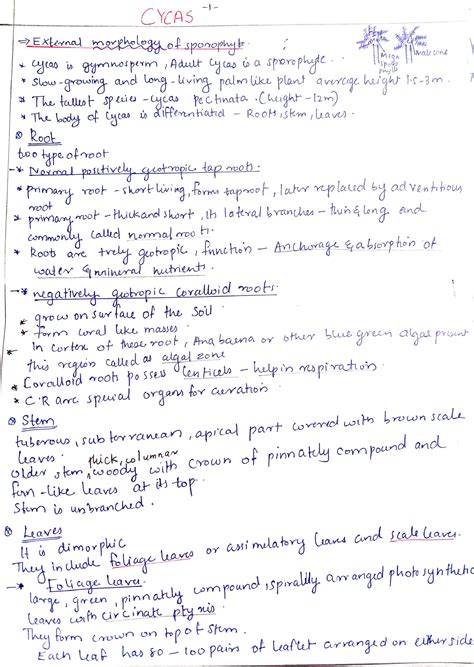 -1-
CYCAS
⇒ External morphology of sporophyte.
* cycas is gymnosperm, Adult cycas is a sporophyte.
* slow-growing and long-living, palm like plant average height 1.5-3m.
* The tallest species - cycas pectinata. (height-12m)
* The body of cycas is differentiated - Root, stem, leaves.
Mega sporo phylls
male cone
Root
two type of root
* Normal positively geotropic tap roots.
* primary root - short living, forms taproot, later replaced by adventitious
root
* primary root - thick and short, its lateral branches - thin & long and
commonly called normal roots.
* Roots are truly geotropic, function - Anchorage & absorption of
water & mineral nutrients.
* negatively geotropic coralloid roots
* grow on surface of the soil
* form coral like masses
* In cortex of these root, Anabaena or other blue green algae present
this region called as algal zone
* Coralloid roots possess lenticels - help in respiration
* C.R are special organs for aeration
Stem
tuberous, subterranean, apical part covered with brown scale
leaves.
older stem, thick, columnar woody with crown of pinnately compound and
fern-like leaves at its top.
Stem is unbranched.
Leaves
It is dimorphic
They include foliage leaves or assimilatory leaves and scale leaves.
* Foliage leaves
large, green, pinnately compound, spirally arranged photosynthetic
leaves with circinate ptyxis
They form crown on top of stem.
Each leaf has 80-100 pairs of leaflet arranged on either side